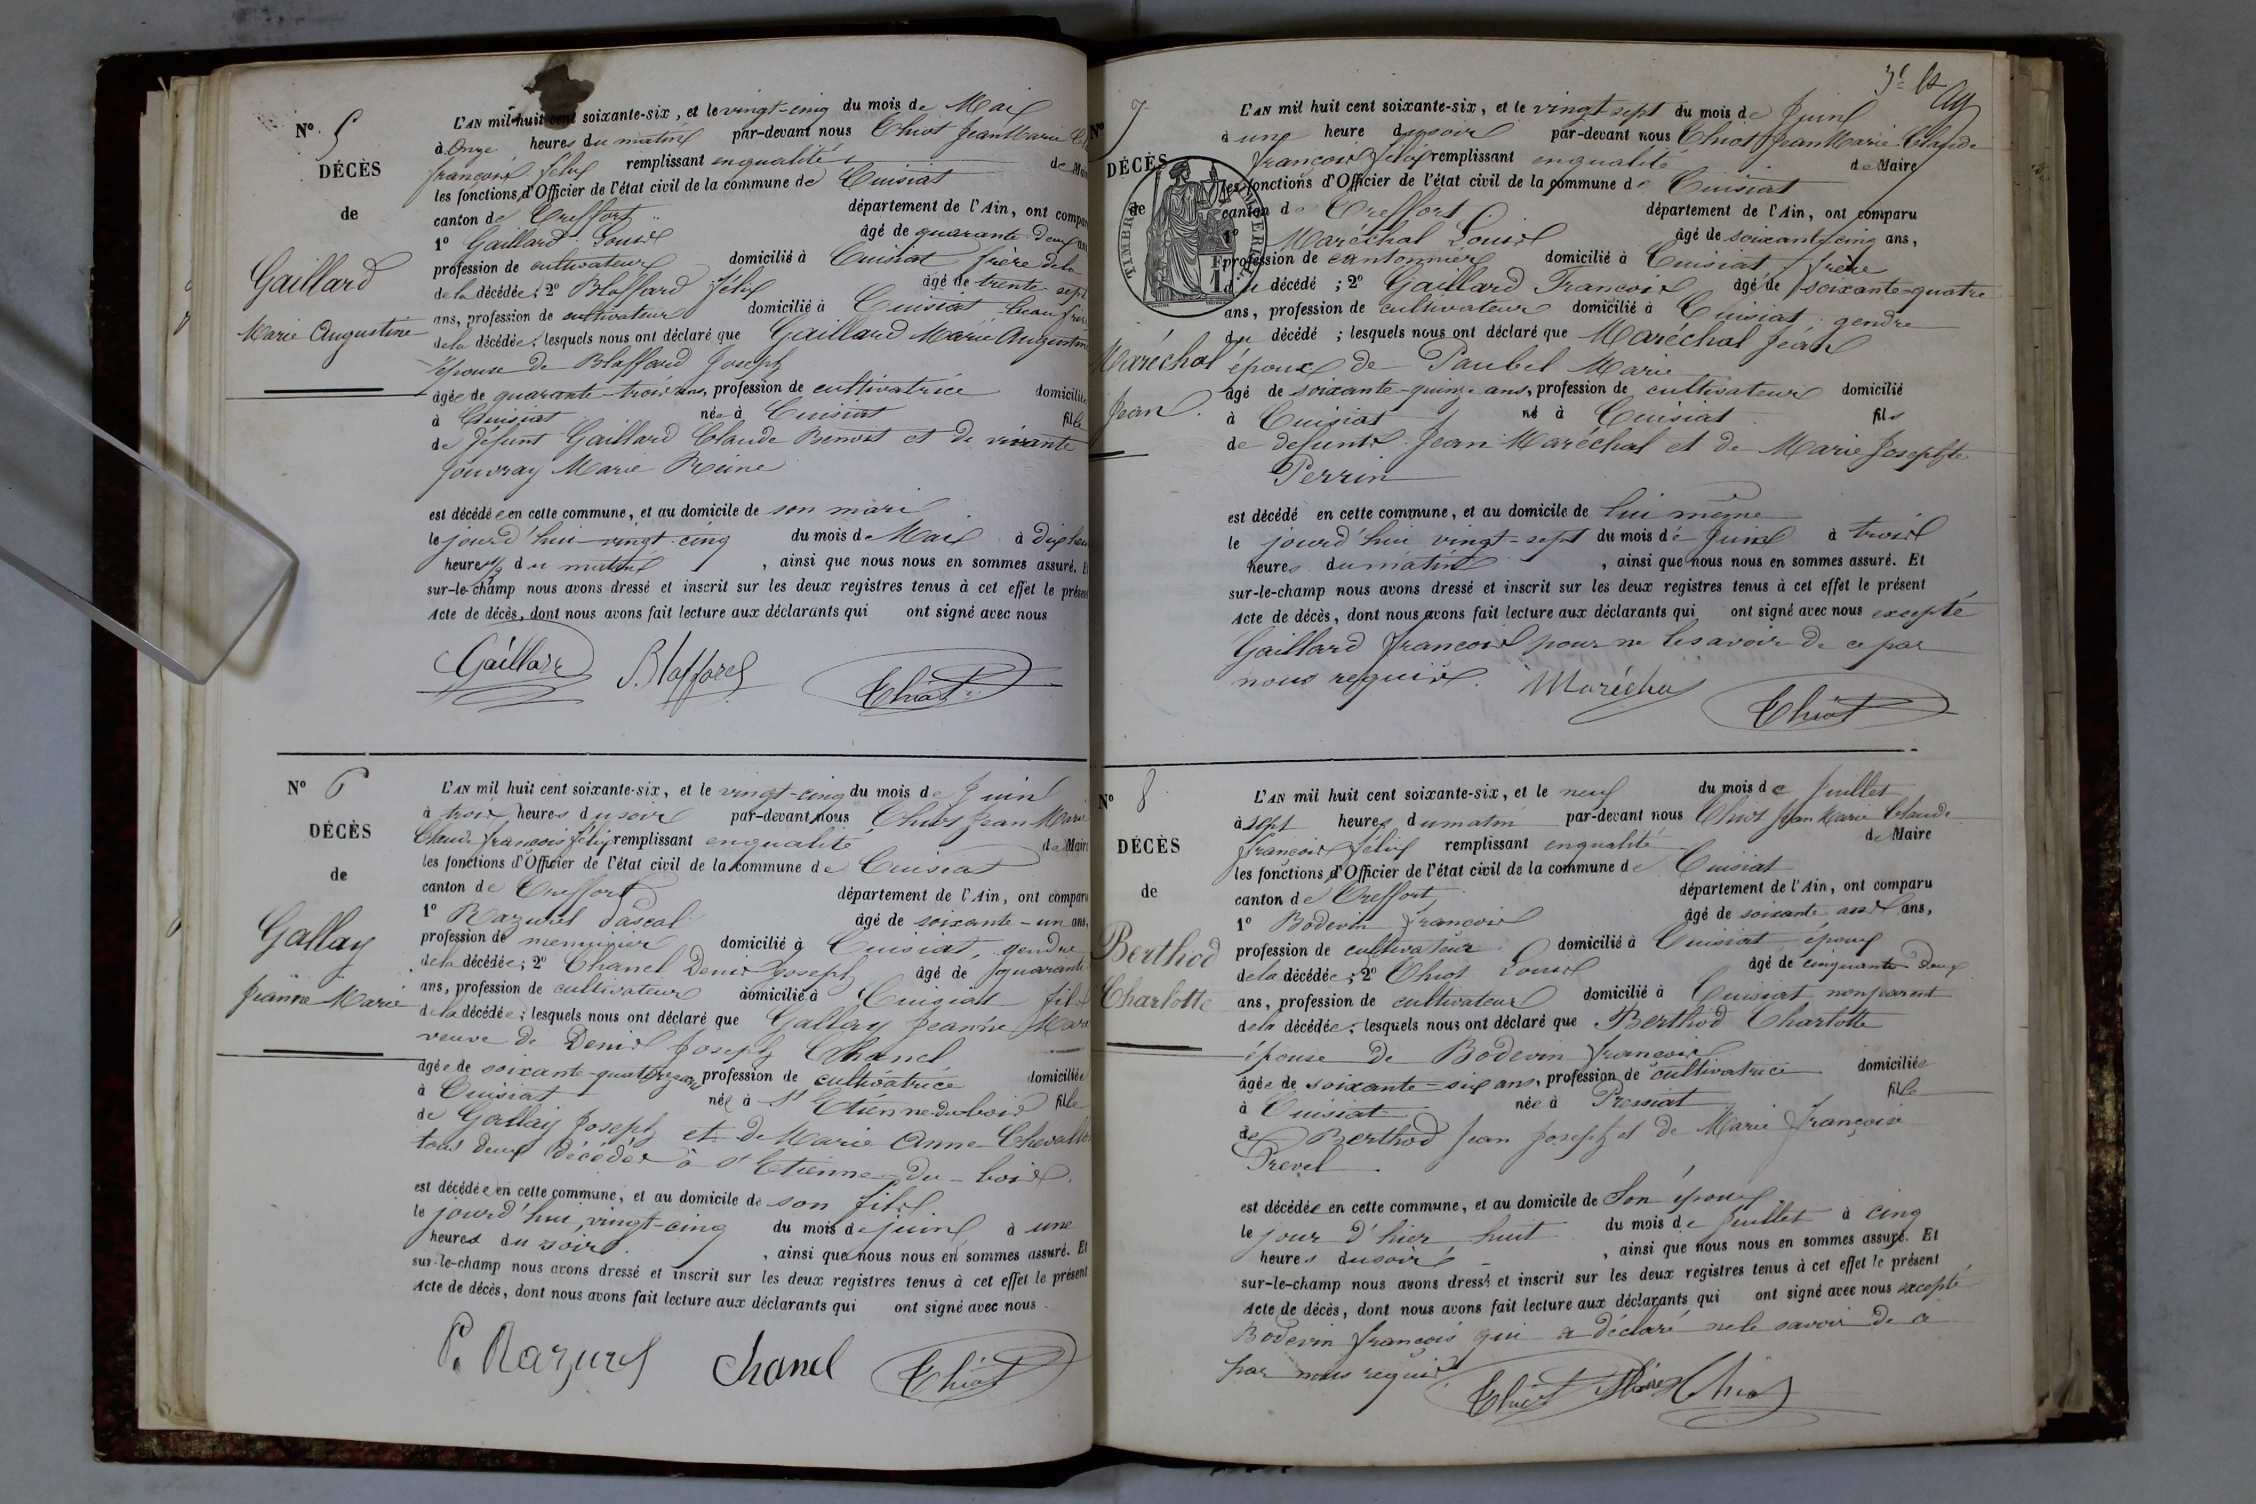 N° 5
DÉCÈS
de
Gaillard
Marie Augustine
L'AN mil huit cent soixante-six, et le vingt-cinq du mois de Mai
à Onze heures du matin par-devant nous Chiot Jean Marie
françois félix remplissant en qualité de
les fonctions d'Officier de l'état civil de la commune de Cuisiat
canton de Treffort département de l'Ain, ont comparu
1° Gaillard Louis âgé de quarante deux ans
profession de cultivateur domicilié à Cuisiat frère de la
de la décédée; 2° Blaffard félix âgé de trente sept
ans, profession de cultivateur domicilié à Cuisiat beau frère
de la décédée; lesquels nous ont déclaré que Gaillard Marie Augustine
épouse de Blaffard Joseph
âgée de quarante-trois ans, profession de cultivatrice domiciliée
à Cuisiat née à Cuisiat fille
de défunt Gaillard Claude Benoit et de vivante
Jouvray Marie Reine
est décédée en cette commune, et au domicile de son mari
le jourd'hui vingt cinq du mois de Mai à dix heures
heures 1/2 du matin, ainsi que nous nous en sommes assuré. Et
sur-le-champ nous avons dressé et inscrit sur les deux registres tenus à cet effet le présent
Acte de décès, dont nous avons fait lecture aux déclarants qui ont signé avec nous
Gaillard Blaffard Chiot
N° 6
DÉCÈS
de
Gallay
Jeanne Marie
L'AN mil huit cent soixante-six, et le vingt-cinq du mois de Juin
à trois heures du soir par-devant nous Chiot Jean Marie
Claude françois félix remplissant en qualité de Maire
les fonctions d'Officier de l'état civil de la commune de Cuisiat
canton de Treffort département de l'Ain, ont comparu
1° Razurel Pascal âgé de soixante-un ans,
profession de menuisier domicilié à Cuisiat, gendre
de la décédée; 2° Chanel Denis Joseph âgé de quarante
ans, profession de cultivateur domicilié à Cuisiat fils
de la décédée; lesquels nous ont déclaré que Gallay Jeanne Marie
veuve de Denis Joseph Chanel
âgée de soixante-quatorze ans profession de cultivatrice domiciliée
à Cuisiat née à St Etienne du bois fille
de Gallay Joseph et de Marie Anne Chevallon
tous deux décédés à St Etienne-du-bois.
est décédée en cette commune, et au domicile de son fils
le jourd'hui, vingt-cinq du mois de juin à une
heures du soir, ainsi que nous nous en sommes assuré. Et
sur-le-champ nous avons dressé et inscrit sur les deux registres tenus à cet effet le présent
Acte de décès, dont nous avons fait lecture aux déclarants qui ont signé avec nous.
P. Razurel Chanel Chiot
N° 7
DÉCÈS
de
Maréchal
Jean.
TIMBRE IMPERIAL
L'AN mil huit cent soixante-six, et le vingt sept du mois de Juin
à une heure du soir par-devant nous Chiot Jean Marie Claude
françois félix remplissant en qualité de Maire
les fonctions d'Officier de l'état civil de la commune de Cuisiat
canton de Treffort département de l'Ain, ont comparu
1° Maréchal Louis âgé de soixante cinq ans,
profession de cantonnier domicilié à Cuisiat, frère
du décédé; 2° Gaillard François âgé de soixante-quatre
ans, profession de cultivateur domicilié à Cuisiat gendre
du décédé; lesquels nous ont déclaré que Maréchal Jean
époux de Paubel Marie
âgé de soixante-quinze ans, profession de cultivateur domicilié
à Cuisiat né à Cuisiat fils
de defunts Jean Maréchal et de Marie Josephte
Perrin
est décédé en cette commune, et au domicile de lui même
le jourd'hui vingt-sept du mois de Juin à trois
heures du matin, ainsi que nous nous en sommes assuré. Et
sur-le-champ nous avons dressé et inscrit sur les deux registres tenus à cet effet le présent
Acte de décès, dont nous avons fait lecture aux déclarants qui ont signé avec nous excepté
Gaillard françois pour ne le savoir de ce par
nous requis. Maréchal Chiot
N° 8
DÉCÈS
de
Berthod
Charlotte
L'AN mil huit cent soixante-six, et le neuf du mois de Juillet
à sept heures du matin par-devant nous Chiot Jean Marie Claude
françois félix remplissant en qualité de Maire
les fonctions d'Officier de l'état civil de la commune de Cuisiat
canton de Treffort département de l'Ain, ont comparu
1° Bodevin françois âgé de soixante ans,
profession de cultivateur domicilié à Cuisiat époux
de la décédée; 2° Chiot Louis âgé de cinquante deux
ans, profession de cultivateur domicilié à Cuisiat non parent
de la décédée; lesquels nous ont déclaré que Berthod Charlotte
épouse de Bodevin françois
âgée de soixante-six ans, profession de cultivatrice domiciliée
à Cuisiat née à Pressiat fille
de Berthod Jean Joseph et de Marie françoise
Prevel
est décédée en cette commune, et au domicile de Son époux
le jour d'hier, huit du mois de Juillet à cinq
heures du soir, ainsi que nous nous en sommes assuré. Et
sur-le-champ nous avons dressé et inscrit sur les deux registres tenus à cet effet le présent
Acte de décès, dont nous avons fait lecture aux déclarants qui ont signé avec nous excepté
Bodevin françois qui a déclaré ne le savoir de ce
par nous requis Chiot Chiot